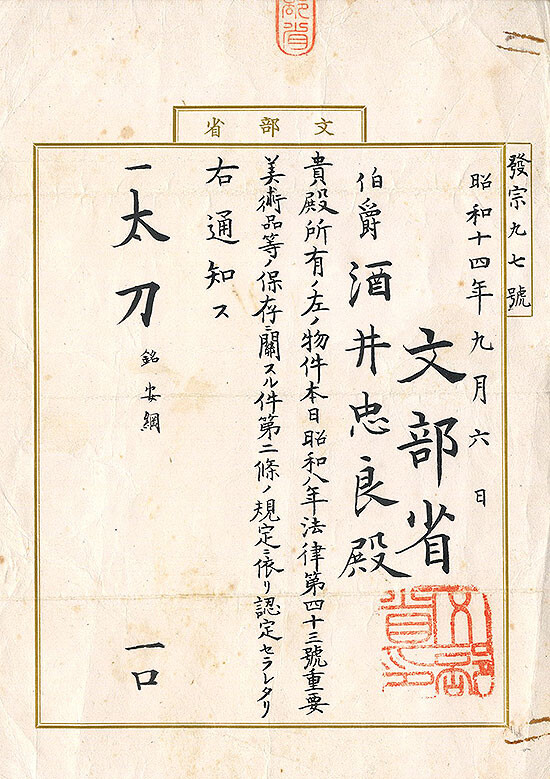 部省
文部省
發宗九七號
昭和十四年九月六日
文部省
伯爵 酒井忠良殿
貴殿所有ノ左ノ物件本日昭和八年法律第四十三號重要
美術品等ノ保存ニ關スル件第二條ノ規定ニ依リ認定セラレタリ
右通知ス
一太刀 銘安綱 一口
文部省印